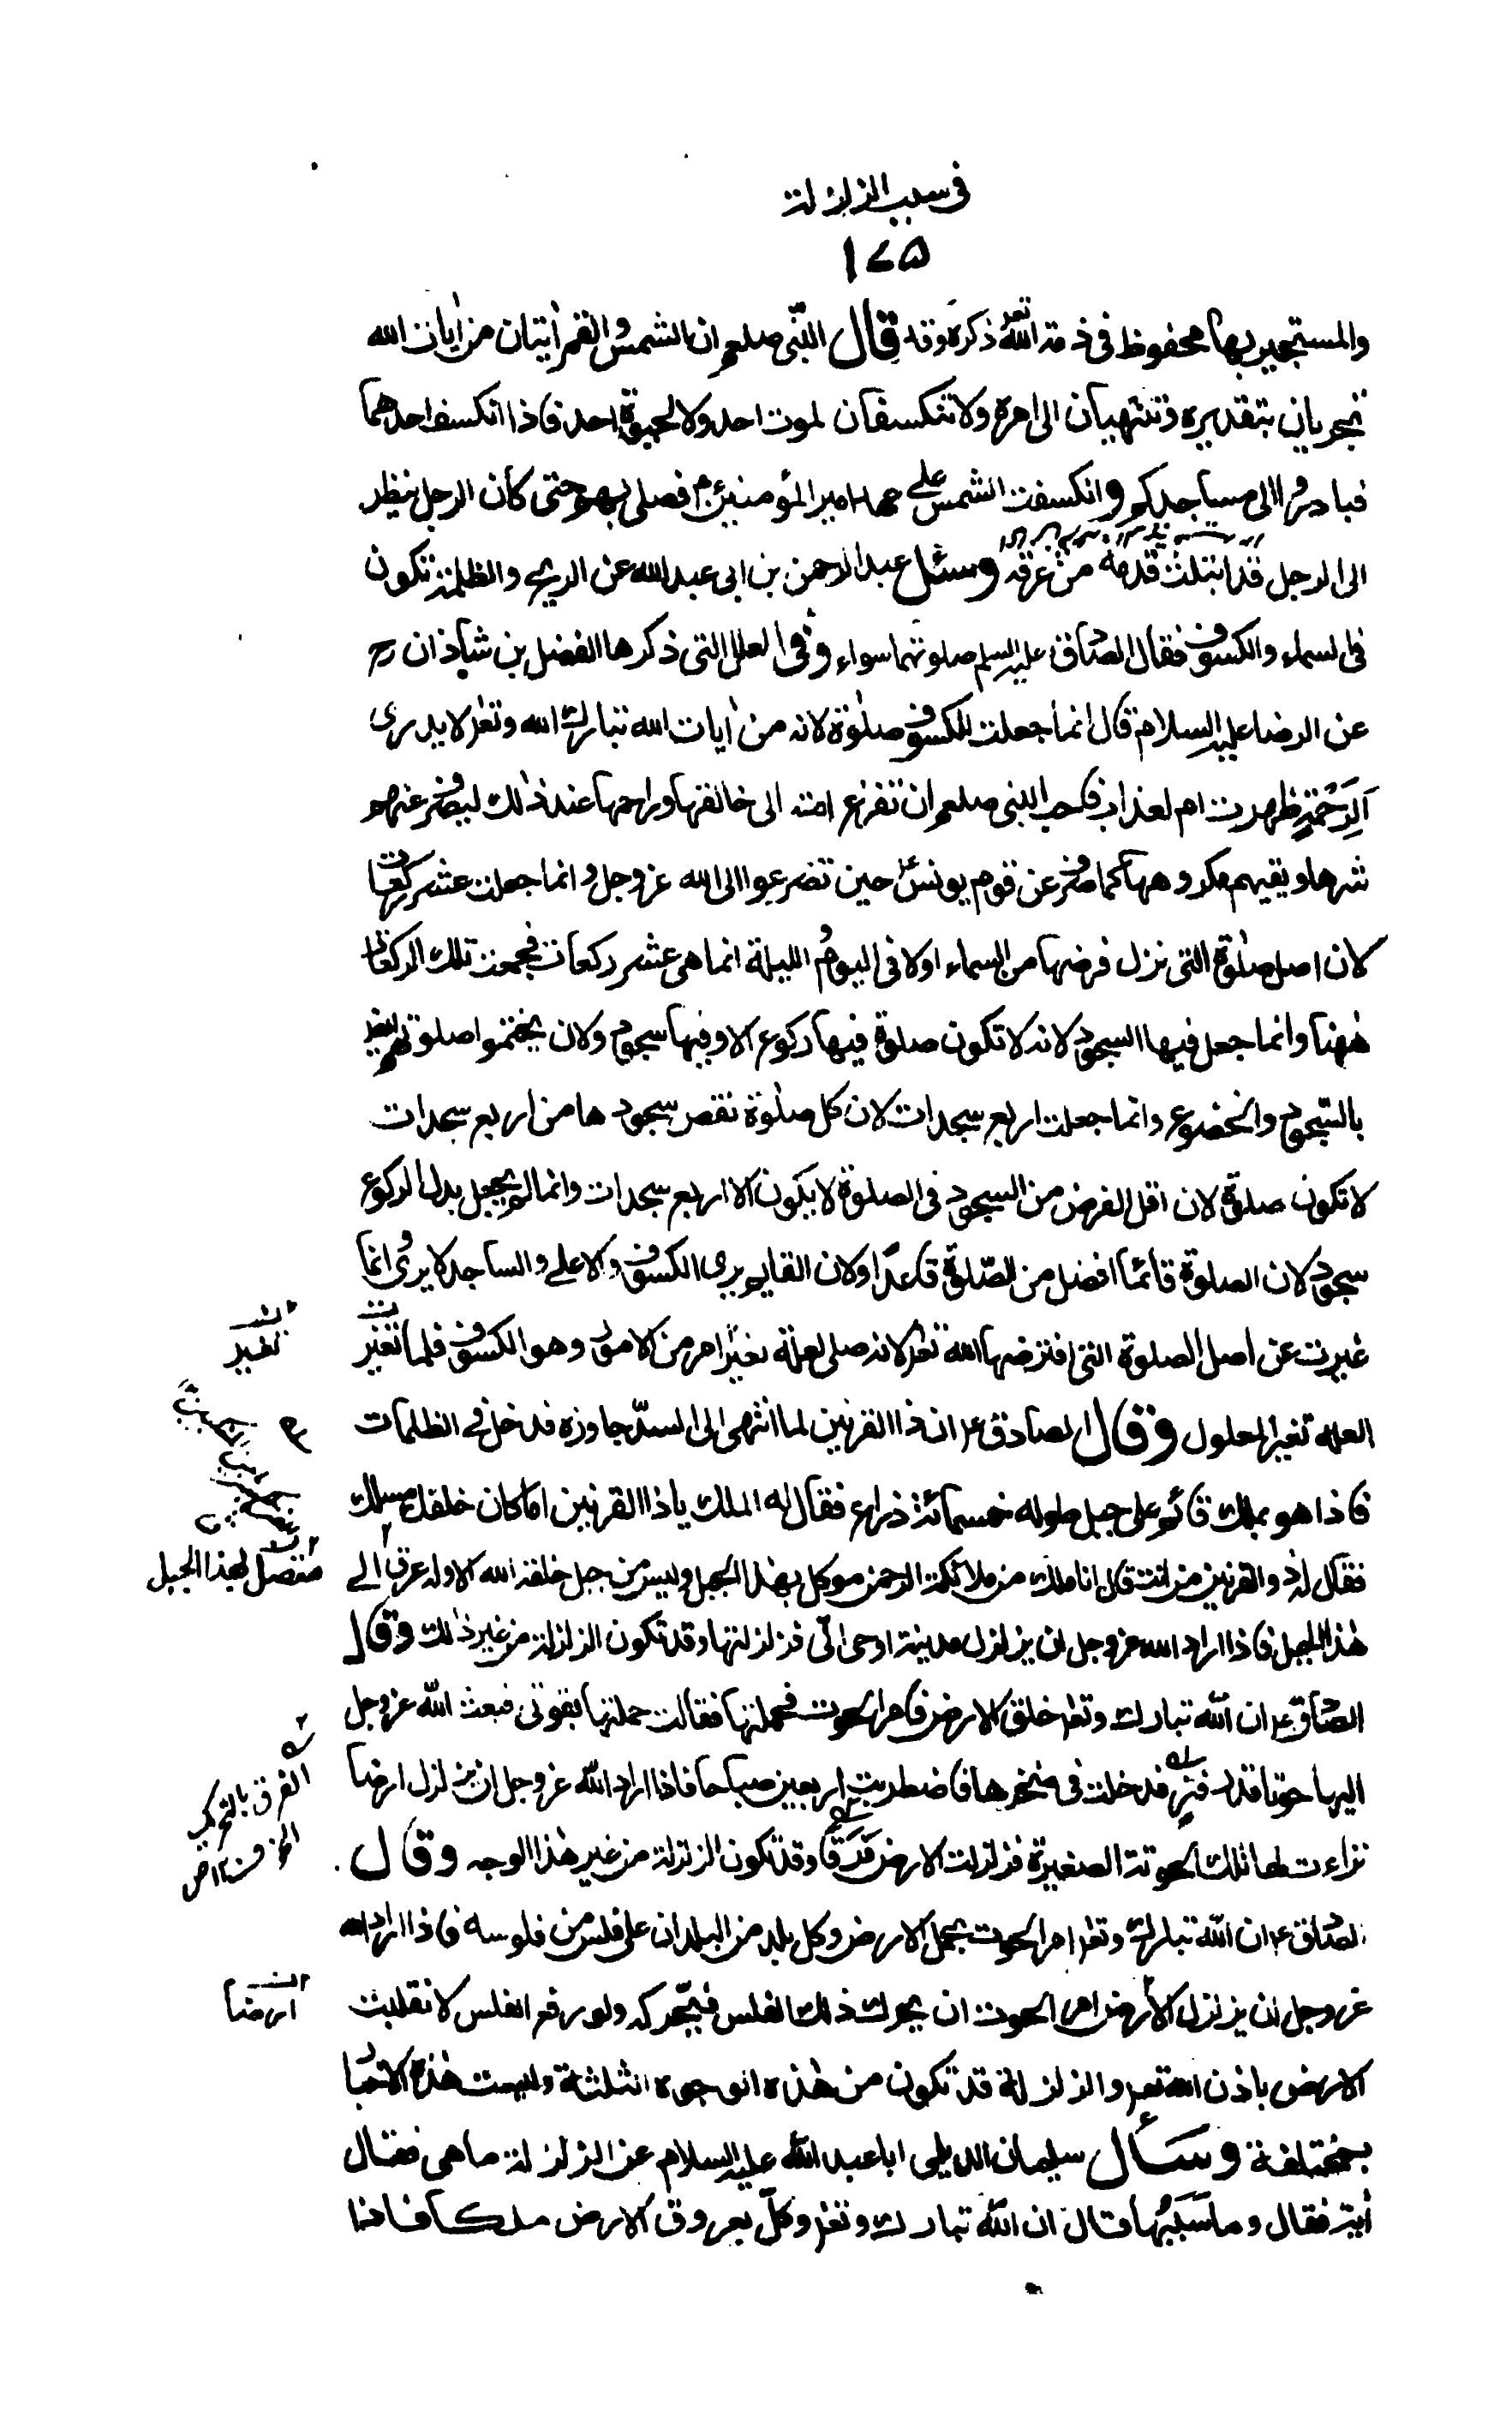 فى سبب الزلزلة
١٧٥
والمستجير بها محفوظ فى ذمة الله تعر ذكره وقد قال النّبى صلعم ان الشمس والقمر اٰيتان من اٰيات الله
تجريان بتقديره وتنتهيان الى امره ولا تنكسفان لموت احد ولا لحيوة احد فاذا انكسف احدهما
فبادروا الى مساجدكم وانكسفت الشمس على عهد امير المؤمنين ع فصلى بهم حتى كان الرجل ينظر
الى الرجل قد ابتلت قدمه من عرقه وسئل عبد الرحمن بن ابى عبد الله عن الريح والظلمة تكون
فى السماء والكسوف فقال الصادق عليه السلم صلوتهما سواء وفى العلل التى ذكرها الفضل بن شاذان رح
عن الرضا عليه السلام قال انما جعلت للكسوف صلوٰة لانه من اٰيات الله تبارك الله وتعر لا يدرى
اَلِرَحْمَةٍ ظهرت ام لعذاب فاحب النبى صلعم ان تفزع امته الى خالقها وراحمها عند ذٰلك ليصرف عنهم
شرها ويقيهم مكروهها كما صرف عن قوم يونس ع حين تضرعوا الى الله عزوجل وانما جعلت عشر ركعات
لان اصل صلوٰة التى نزل فرضها من السماء اولا فى اليوم و الليلة انما هى عشر ركعات فجمعت تلك الركعات
هٰهنا وانما جعل فيها السجود لانه لا تكون صلوة فيها ركوع الا وفيها سجود ولان يختموا صلوتهم ايضر
بالسّجود والخضوع وانما جعلت اربع سجدات لان كل صلوٰة نقص سجودها من اربع سجدات
لا تكون صلوة لان اقل الفرض من السجود فى الصلوة لا يكون الا اربع سجدات وانما لم يجعل بدل الركوع
سجود لان الصلوة قائمًا افضل من الصّلوة قاعدًا ولان القايم يرى الكسوف والاعلے والساجد لا يرى وانما
غيرت عن اصل الصلوة التى افترضها الله تعر لانه صلى لعلة تغيّر امر من الامور وهو الكسوف فلما تغيرت
العلة تغير المعلول وقال الصادق ع ان ذا القرنين لما انتهى الى السدّ جاوزه فدخل فے الظلمات
فاذا هو بملك قائم على جبل طوله خمسمائة ذراع فقال له الملك يا ذا القرنين اما كان خلفك مسلك
فقال له ذو القرنين من انت قال انا ملك من ملائكة الرحمن موكل بهذا الجبل وليس من جبل خلقه الله الا وله عرق الے
هٰذا الجبل فاذا اراد الله عزوجل ان يزلزل مدينة اوحى الىّ فزلزلتها وقد تكون الزلزلة من غير ذٰلك وقال
الصادق ع ان الله تبارك وتعر خلق الارض فامر الحوت فحملتها فقالت حملتها بقوتى فبعث الله عزوجل
اليها حوتا قدر فتر فدخلت فى منخرها فاضطربت اربعين صباحا فاذا اراد الله عزوجل ان يزلزل ارضا
تراءت لها تلك الحوتة الصغيرة فزلزلت الارض فَرَقًا وقد تكون الزلزلة من غير هٰذا الوجه وقال
الصادق ع ان الله تبارك وتعر امر الحوت بحمل الارض وكل بلد من البلدان على فلس من فلوسه فاذا اراد الله
عزوجل ان يزلزل الارض امر الحوت ان يحرك ذلك الفلس فيتحركه ولو رفع الفلس لانقلبت
الارض باذن الله تعر والزلزلة قد تكون من هٰذه الوجوه الثلثة وليست هٰذه الاخبار
بمختلفة وسأل سليمان الديلمى ابا عبد الله عليه السلام عن الزلزلة ما هى فقال
اٰية فقال وما سَبَبُها قال ان الله تبارك وتعر وكّل بعروق الارض ملكا فاذا
تغير
متصل بهذا الجبل
الفرق بالتحريك
الخوف
ارضا